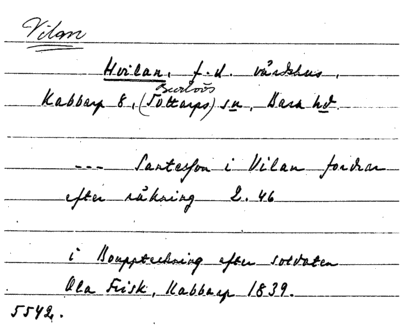 Vilan
Hvilan, f.d. värdshus,
Burlövs
Kabbarp 8, (Tottarps) sn, Bara hd.
--- Santesson i Vilan fordrar
efter räkning 2.46
i Bouppteckning efter soldaten
Ola Frisk, Kabbarp 1839.
5542.